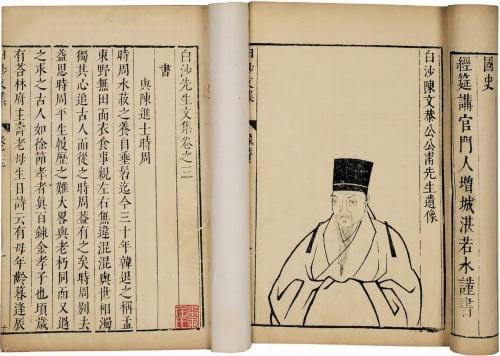 國史
經筵講官門人增城湛若水謹書
白沙陳文恭公公甫先生遺像
白沙文集
白沙先生文集卷之三
書
與陳進士時周
時周水菽之養自垂髫迄今三十年韓退之稱孟
東野無田而衣食事親左右無違混混與世相濁
獨其心追古人而從之時周蓋有之矣時周別去
益思時周平生履歷之難大畧與老朽同而又過
之求之古人如徐節孝者真百鍊金孝子也頃歲
有荅林府主壽老母生日詩云有母年齡暮逢辰
白沙文集